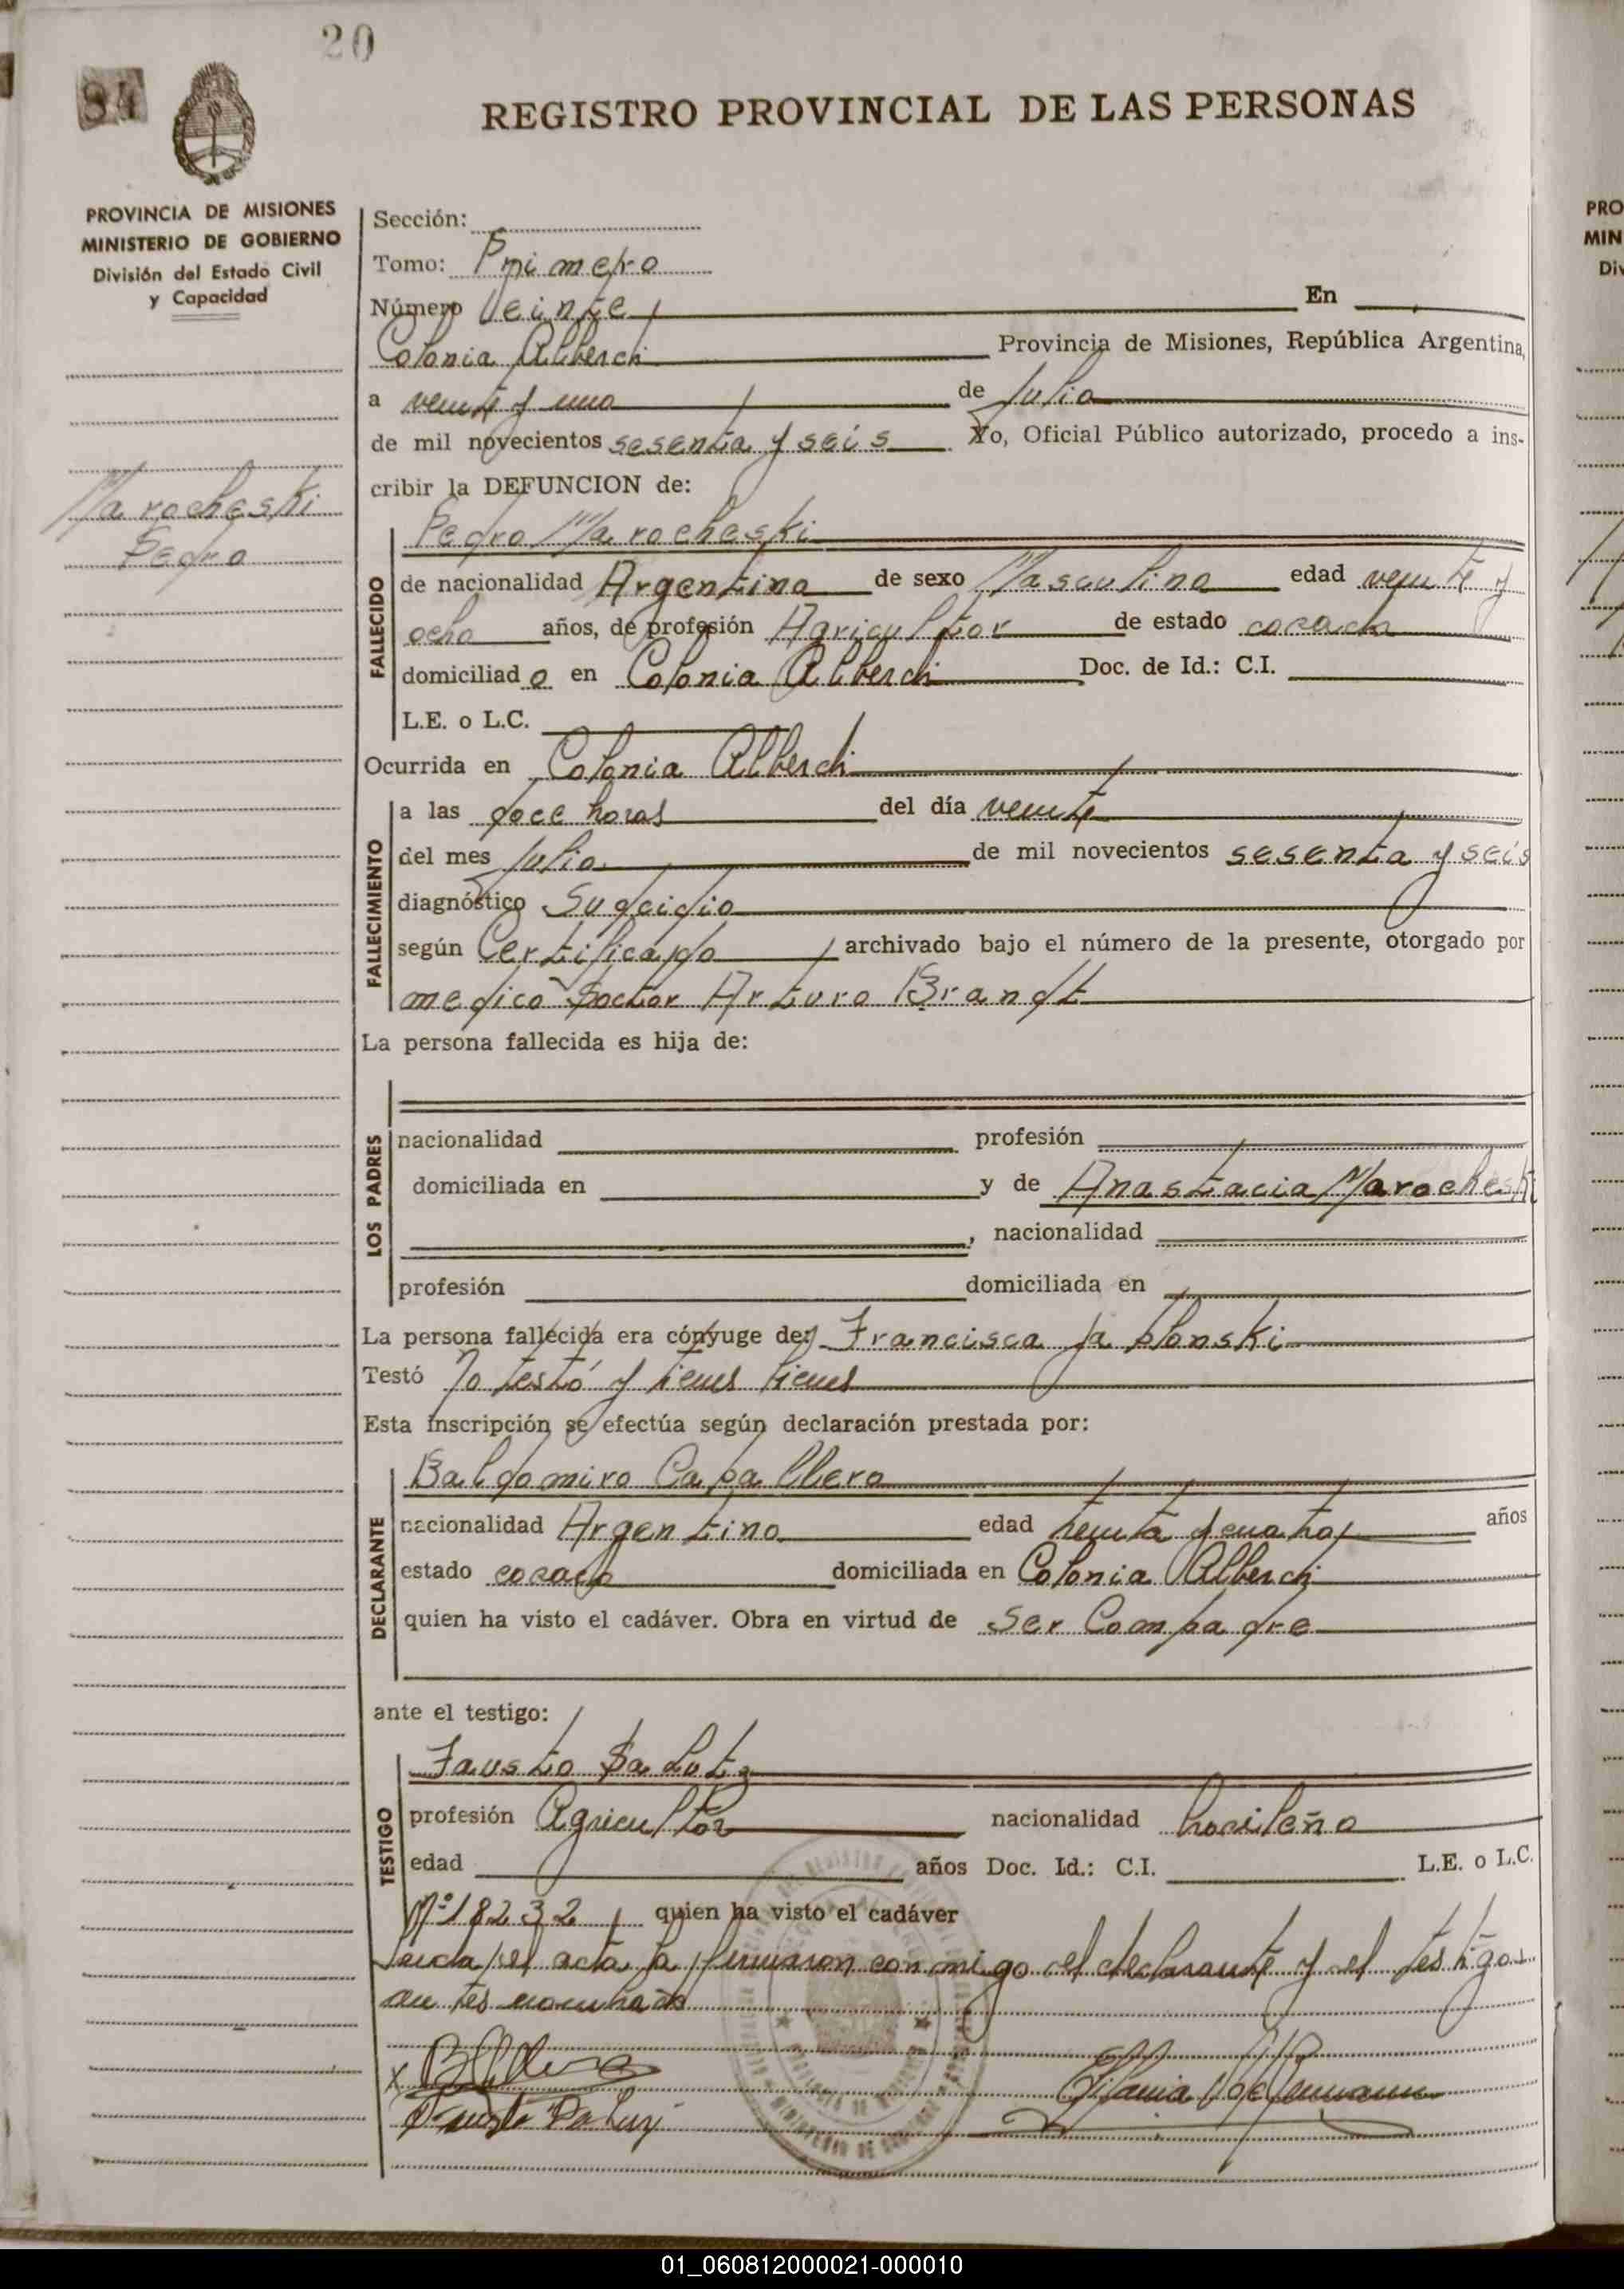 20
84
REGISTRO PROVINCIAL DE LAS PERSONAS
PROVINCIA DE MISIONES
MINISTERIO DE GOBIERNO
División del Estado Civil
y Capacidad
Sección:
Tomo: Primero
Número Veinte En
Colonia Alberdi Provincia de Misiones, República Argentina,
a veinte y uno de Julio
de mil novecientos sesenta y seis Yo, Oficial Público autorizado, procedo a ins-
cribir la DEFUNCION de:
Marocheski
Pedro
FALLECIDO
Pedro Marocheski
de nacionalidad Argentina de sexo Masculino edad veinte y
ocho años, de profesión Agricultor de estado casado
domiciliado en Colonia Alberdi Doc. de Id.: C.I.
L.E. o L.C.
Ocurrida en Colonia Alberdi
FALLECIMIENTO
a las doce horas del día veinte
del mes Julio de mil novecientos sesenta y seis
diagnóstico Sudcidio
según Certificado archivado bajo el número de la presente, otorgado por
medico Doctor Arturo Brandt
La persona fallecida es hija de:
LOS PADRES
nacionalidad profesión
domiciliada en y de Anastacia Marocheski
, nacionalidad
profesión domiciliada en
La persona fallecida era cónyuge de: Francisca Jablonski
Testó No testó y tiene bienes
Esta inscripción se efectúa según declaración prestada por:
DECLARANTE
Baldomiro Caballero
nacionalidad Argentino edad treinta y cuatro años
estado casado domiciliada en Colonia Alberdi
quien ha visto el cadáver. Obra en virtud de Ser Compadre
ante el testigo:
TESTIGO
Fausto Da Lutz
profesión Agricultor nacionalidad brasileño
edad años Doc. Id.: C.I. L.E. o L.C.
Nº 18232 quien ha visto el cadáver
Leida el acta la firmaron conmigo el declarante y el testigo
antes nombrado
Fausto Da Luz
PRO
MIN
Div
01_060812000021-000010